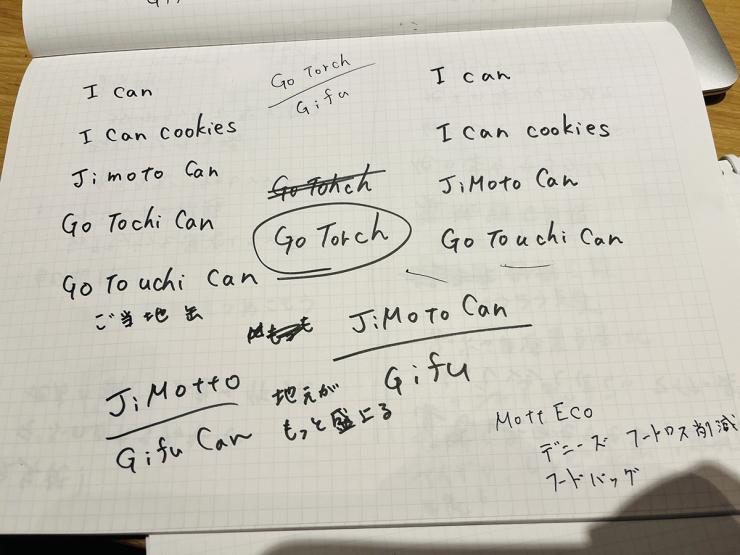 I can
I can cookies
Jimoto Can
Go Tochi Can
Go To uchi Can
ご当地缶
JiMotto
Gifu Can
Go Torch
Gifu
Go Tohch
Go Torch
JiMoto Can
Gifu
地元が
もっと盛上る
I can
I can cookies
JiMoto Can
Go Touchi Can
Mott Eco
デニーズ フードロス削減
フードバッグ